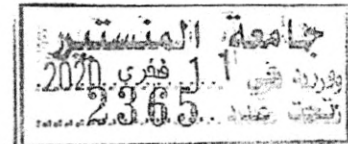 جامعة المنستير
ورد في 11 فيفري 2020
تحت عدد 2365